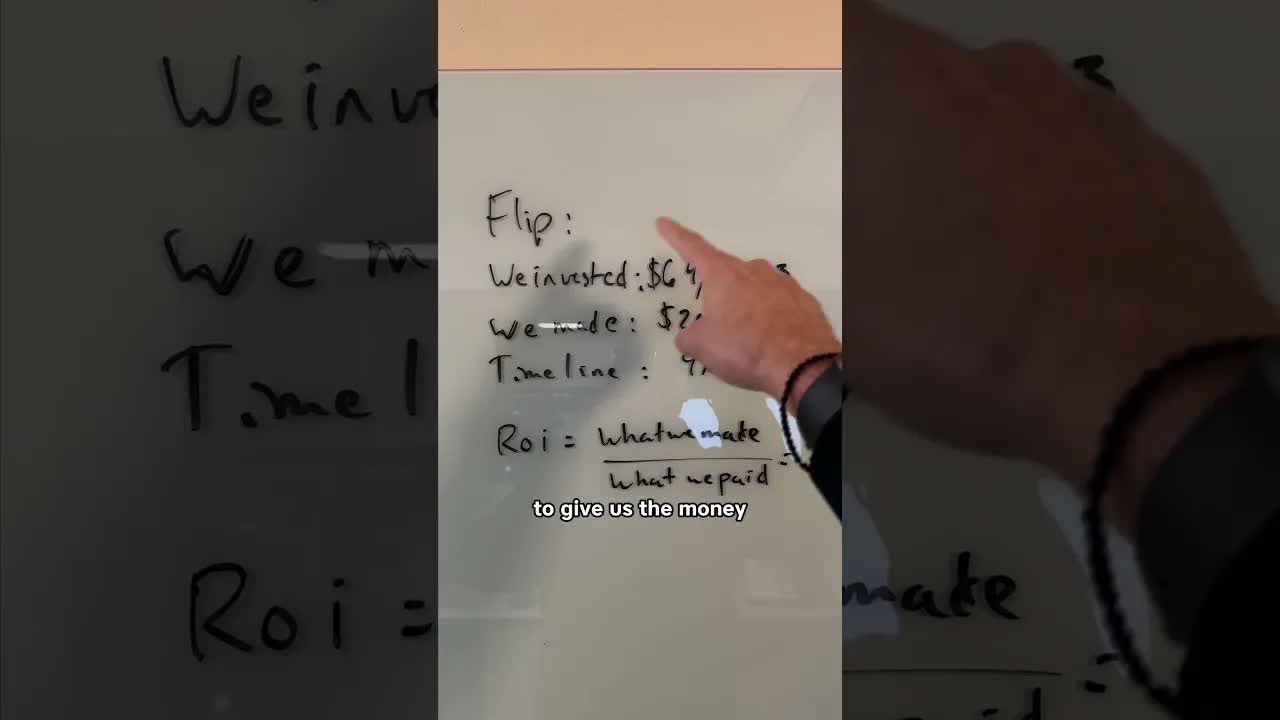 Flip:
We invested: $64, 3
We made: $2
Timeline : 4
Roi = What we made
What we paid =
to give us the money